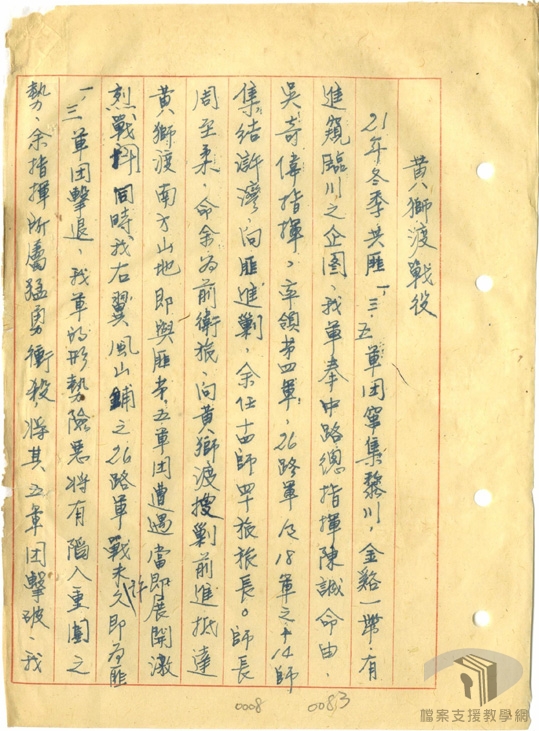 黃獅渡戰役
21年冬季共匪一、三、五軍团窜集黎川,金谿一帶,有
進窺臨川之企图、我軍奉中路總指揮陳誠命由、
吳奇偉指揮,率領第四軍,26路軍及18軍之十14師
集結滸灣,向匪進剿,余任十四師四十旅旅長。師長
周至柔,命余为前衛旅,向黃獅渡搜剿前進抵達
黃獅渡南方山地即與匪第五軍团遭遇當即展開激
烈戰鬥同時我右翼風山鋪之26路軍戰未久即为匪
一,三軍团擊退、我軍的形勢險惡將有陷入重圍之
勢、余指揮所屬猛勇衝殺,將其五軍团擊破、我
0008
0083
檔案支援教學網